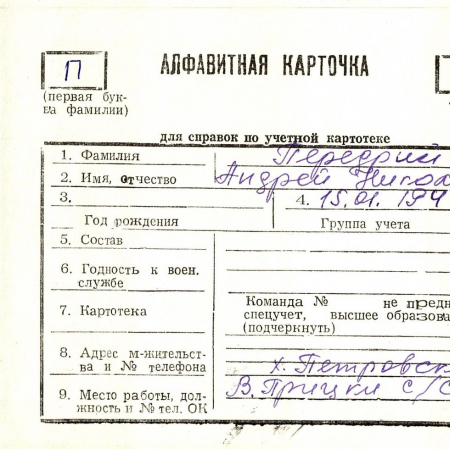 П
АЛФАВИТНАЯ КАРТОЧКА
(первая бук-
ва фамилии)
для справок по учетной картотеке
1. Фамилия
2. Имя, отчество Андрей
3. 4. 15.01.194
Год рождения Группа учета
5. Состав
6. Годность к воен.
службе
Команда № не предн
7. Картотека спецучет, высшее образова
(подчеркнуть)
8. Адрес м-жительст-
ва и № телефона х. Петровск
9. Место работы, дол-
жность и № тел. ОК В. Прицки с/с